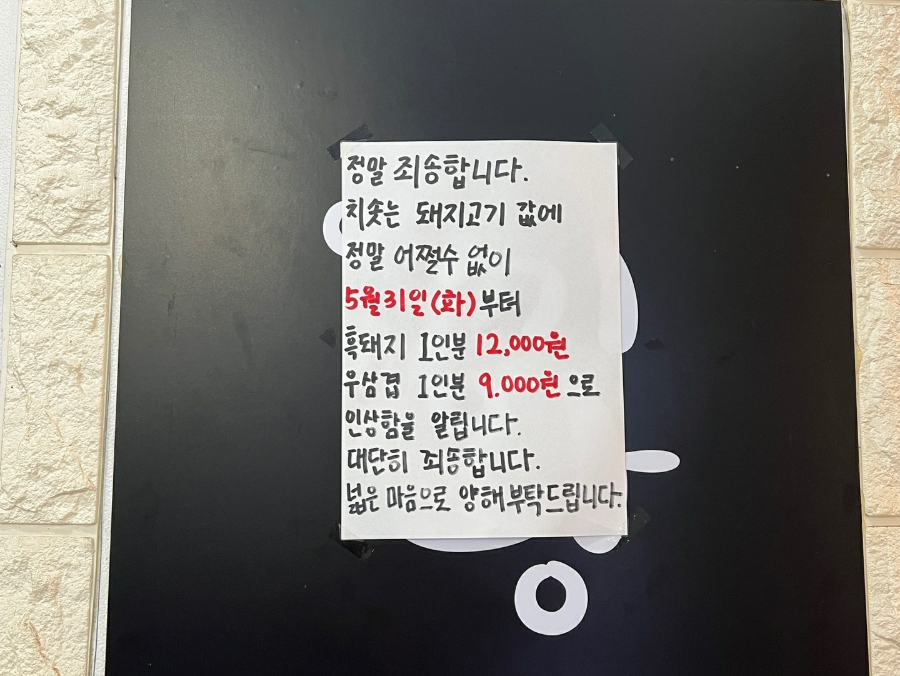 정말 죄송합니다.
치솟는 돼지고기 값에
정말 어쩔수 없이
5월31일(화)부터
흑돼지 1인분 12,000원
우삼겹 1인분 9.000원으로
인상함을 알립니다.
대단히 죄송합니다.
넓은 마음으로 양해부탁드립니다.